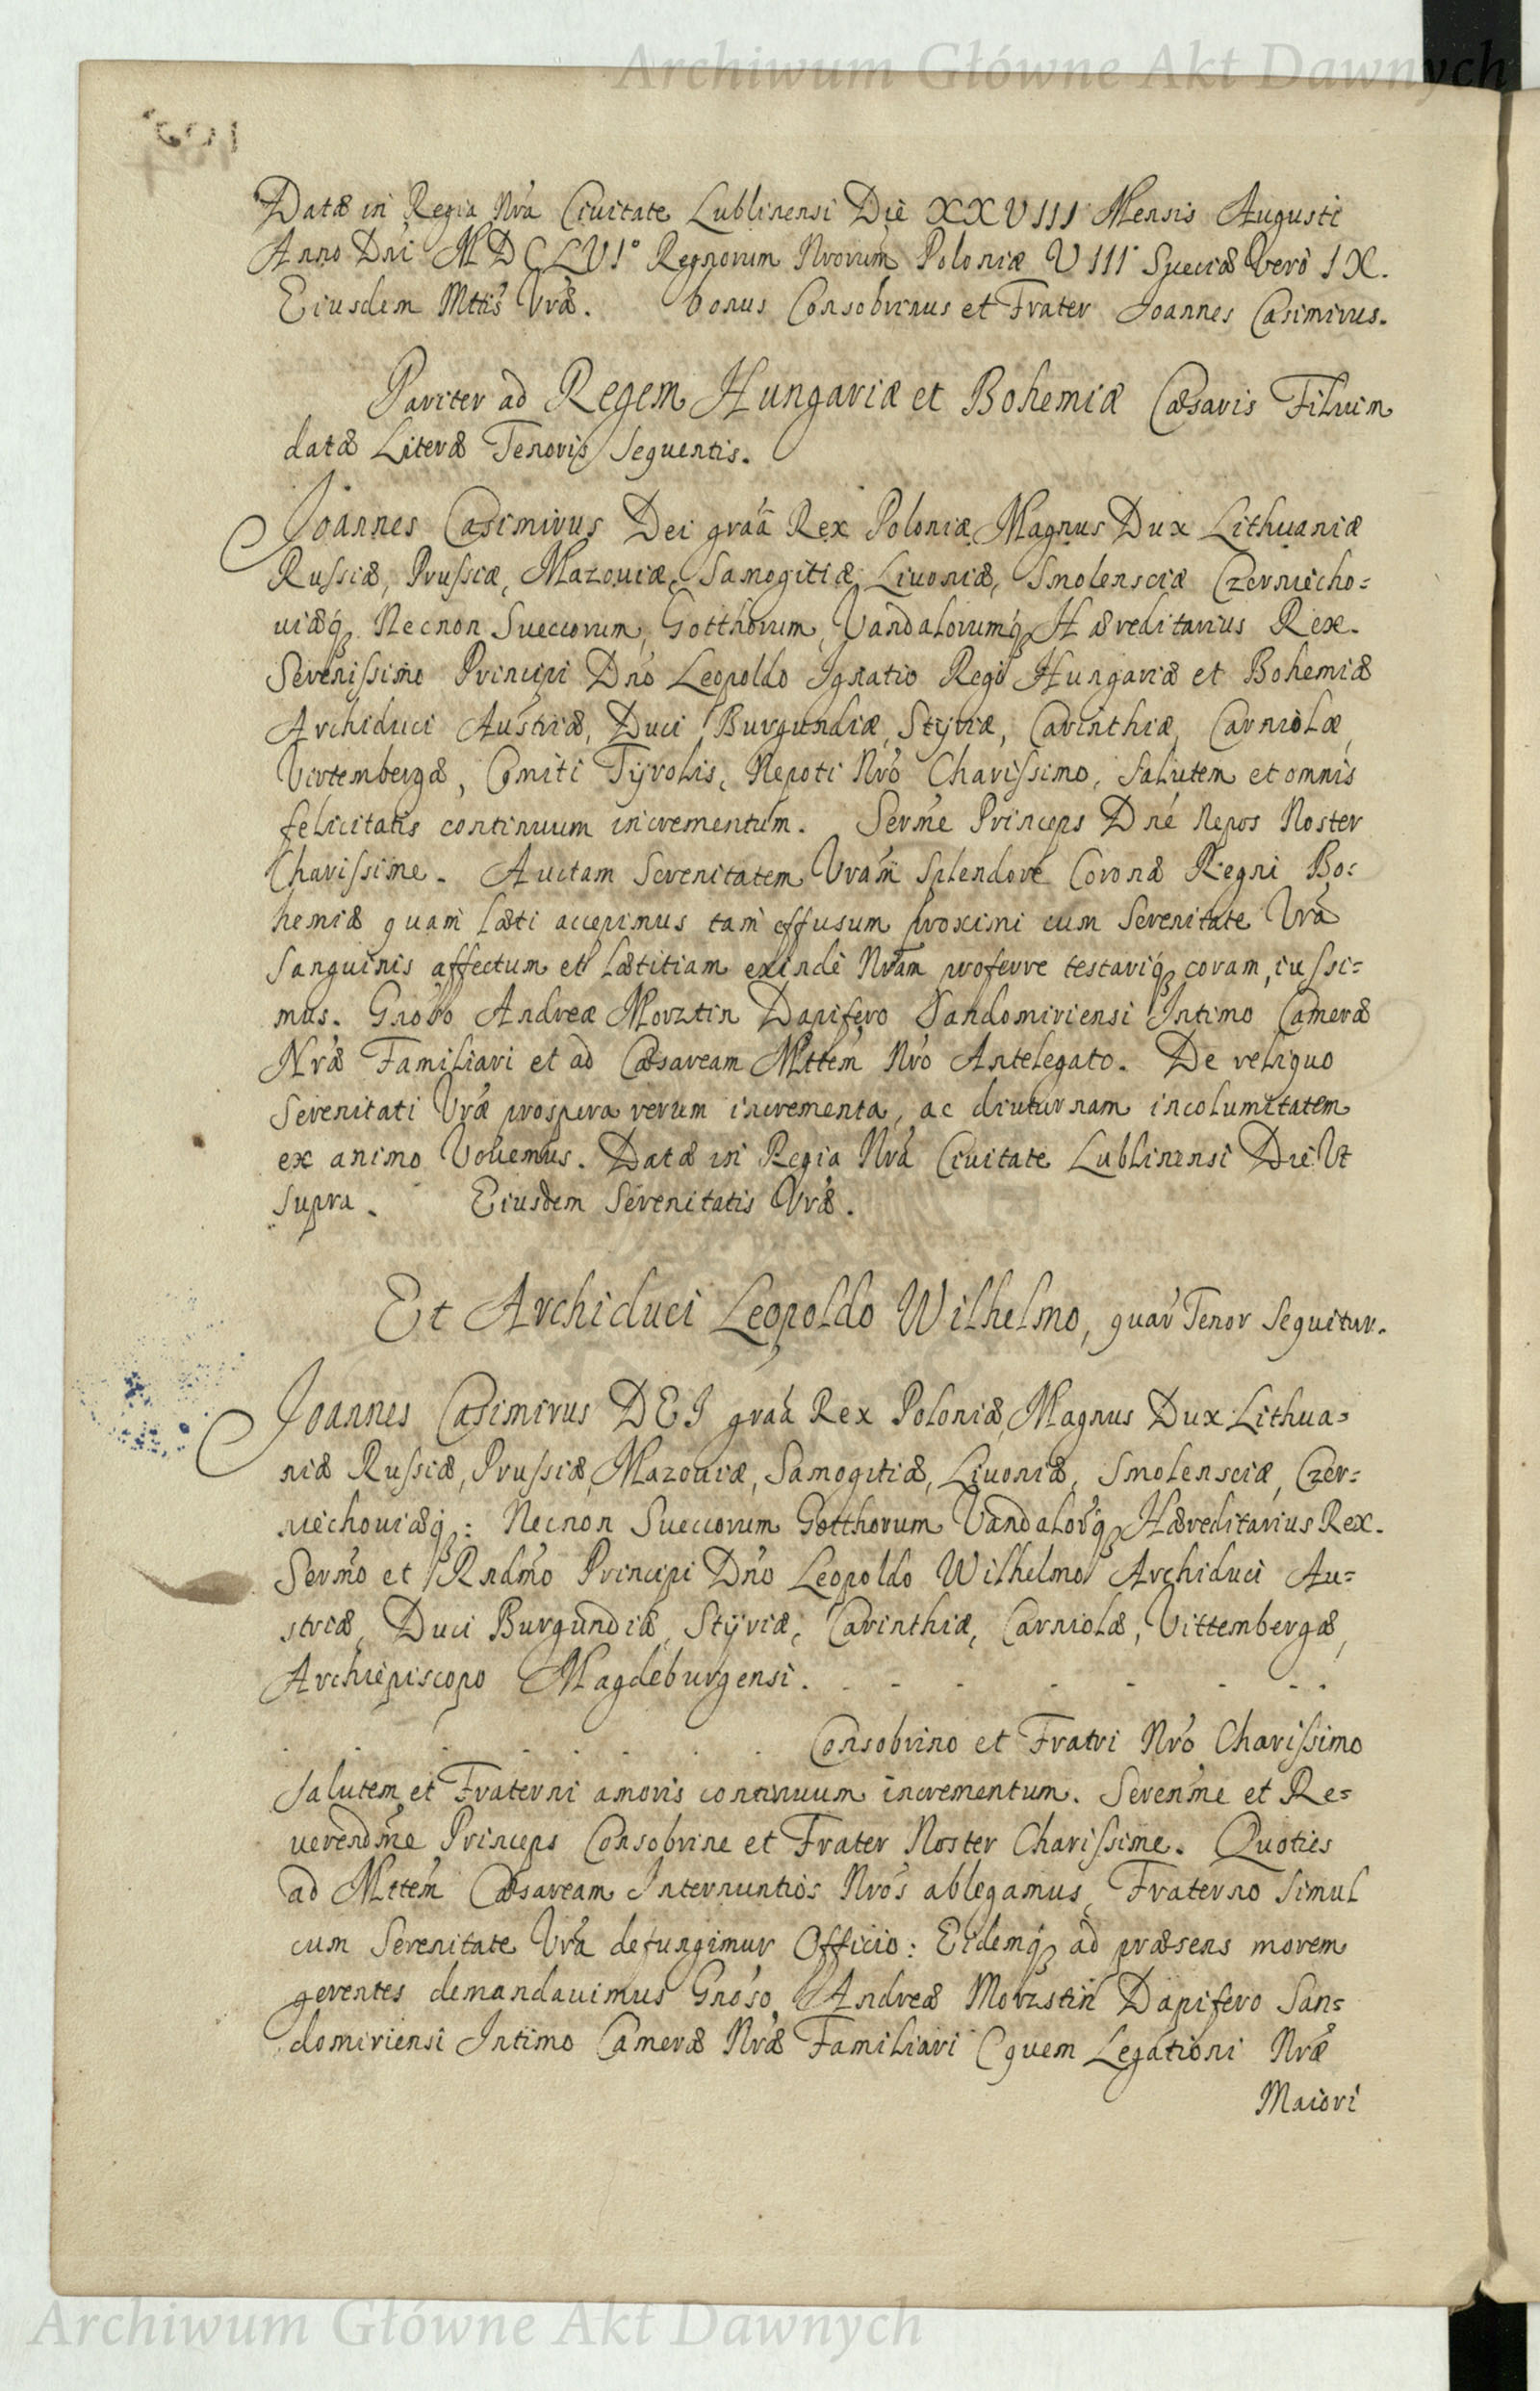 Archiwum Główne Akt Dawnych
Datæ in Regia Nrã Ciuitate Lublinensi Die XXVIII Mensis Augusti
Anno Dni MDCLVI° Regnorum Nrorum Poloniæ VIII Sueciæ Vero IX.
Eiusdem Mttis Vræ. bonus Consobrinus et Frater Joannes Casimirus.
Pariter ad Regem Hungariæ et Bohemiæ Cæsaris Filium
datæ Literæ Tenoris sequentis.
Joannes Casimirus Dei graã Rex Poloniæ Magnus Dux Lithuaniæ
Russiæ, Prussiæ, Mazouiæ, Samogitiæ, Liuoniæ, Smolensciæ Czerniecho=
uiæq́ Necnon Suecorum, Gotthorum, Vandalorumq́ Hæreditarius Rex.
Serenissimo Principi Dnó Leopoldo Ignatio Regi Hungariæ et Bohemiæ
Archiduci Austriæ, Duci Burgundiæ, Stÿriæ, Carinthiæ, Carniolæ,
Virtembergæ, Comiti Tÿrolis, Nepoti Nró Charissimo, Salutem et omnis
felicitatis continuum incrementum. Sermé Princeps Dné Nepos Noster
Charissime. Auctam Serenitatem Vrám Splendore Coronæ Regni Bo:
hemiæ quam læti accepimus tam effusum proximi cum Serenitate Vrá
sanguinis affectum et lætitiam exinde Nrám proferre testariq́ coram, iussi=
mus. Gnoso Andreæ Morztin Dapifero Sandomiriensi Intimo Cameræ
Nræ Familiari et ad Cæsaream Mttem Nró Antelegato. De reliquo
Serenitati Vræ prospera rerum incrementa, ac diuturnam incolumitatem
ex animo Vouemus. Datæ in Regia Nrá Ciuitate Lublinensi Die Vt
supra. Eiusdem Serenitatis Vræ.
Et Archiduci Leopoldo Wilhelmo, quar Tenor Sequitur.
Joannes Casimirus DEI graã Rex Poloniæ, Magnus Dux Lithua=
niæ Russiæ, Prussiæ, Mazouiæ, Samogitiæ, Liuoniæ, Smolensciæ, Czer=
niechouiæq́: Necnon Suecorum Gotthorum Vandalorq́ Hæreditarius Rex.
Sermo et Rndmo Principi Dno Leopoldo Wilhelmo Archiduci Au=
striæ, Duci Burgundiæ, Stÿriæ, Carinthiæ, Carniolæ, Vittembergæ,
Archiepiscopo Magdeburgensi. . - - - - - - .
. . . . . . . . Consobrino et Fratri Nró Charissimo
salutem et Fraterni amoris continuum incrementum. Serenme et Re=
uerendme Princeps Consobrine et Frater Noster Charissime. Quoties
ad Mttem Cæsaream Internuntios Nrós ablegamus, Fraterno simul
cum Serenitate Vrá defungimur Officio: Eidemq́ ad præsens morem
gerentes demandauimus Gnoso Andreæ Morzstin Dapifero San=
domiriensi Intimo Cameræ Nræ Familiari (quem Legationi Nræ
Maiori
Archiwum Główne Akt Dawnych